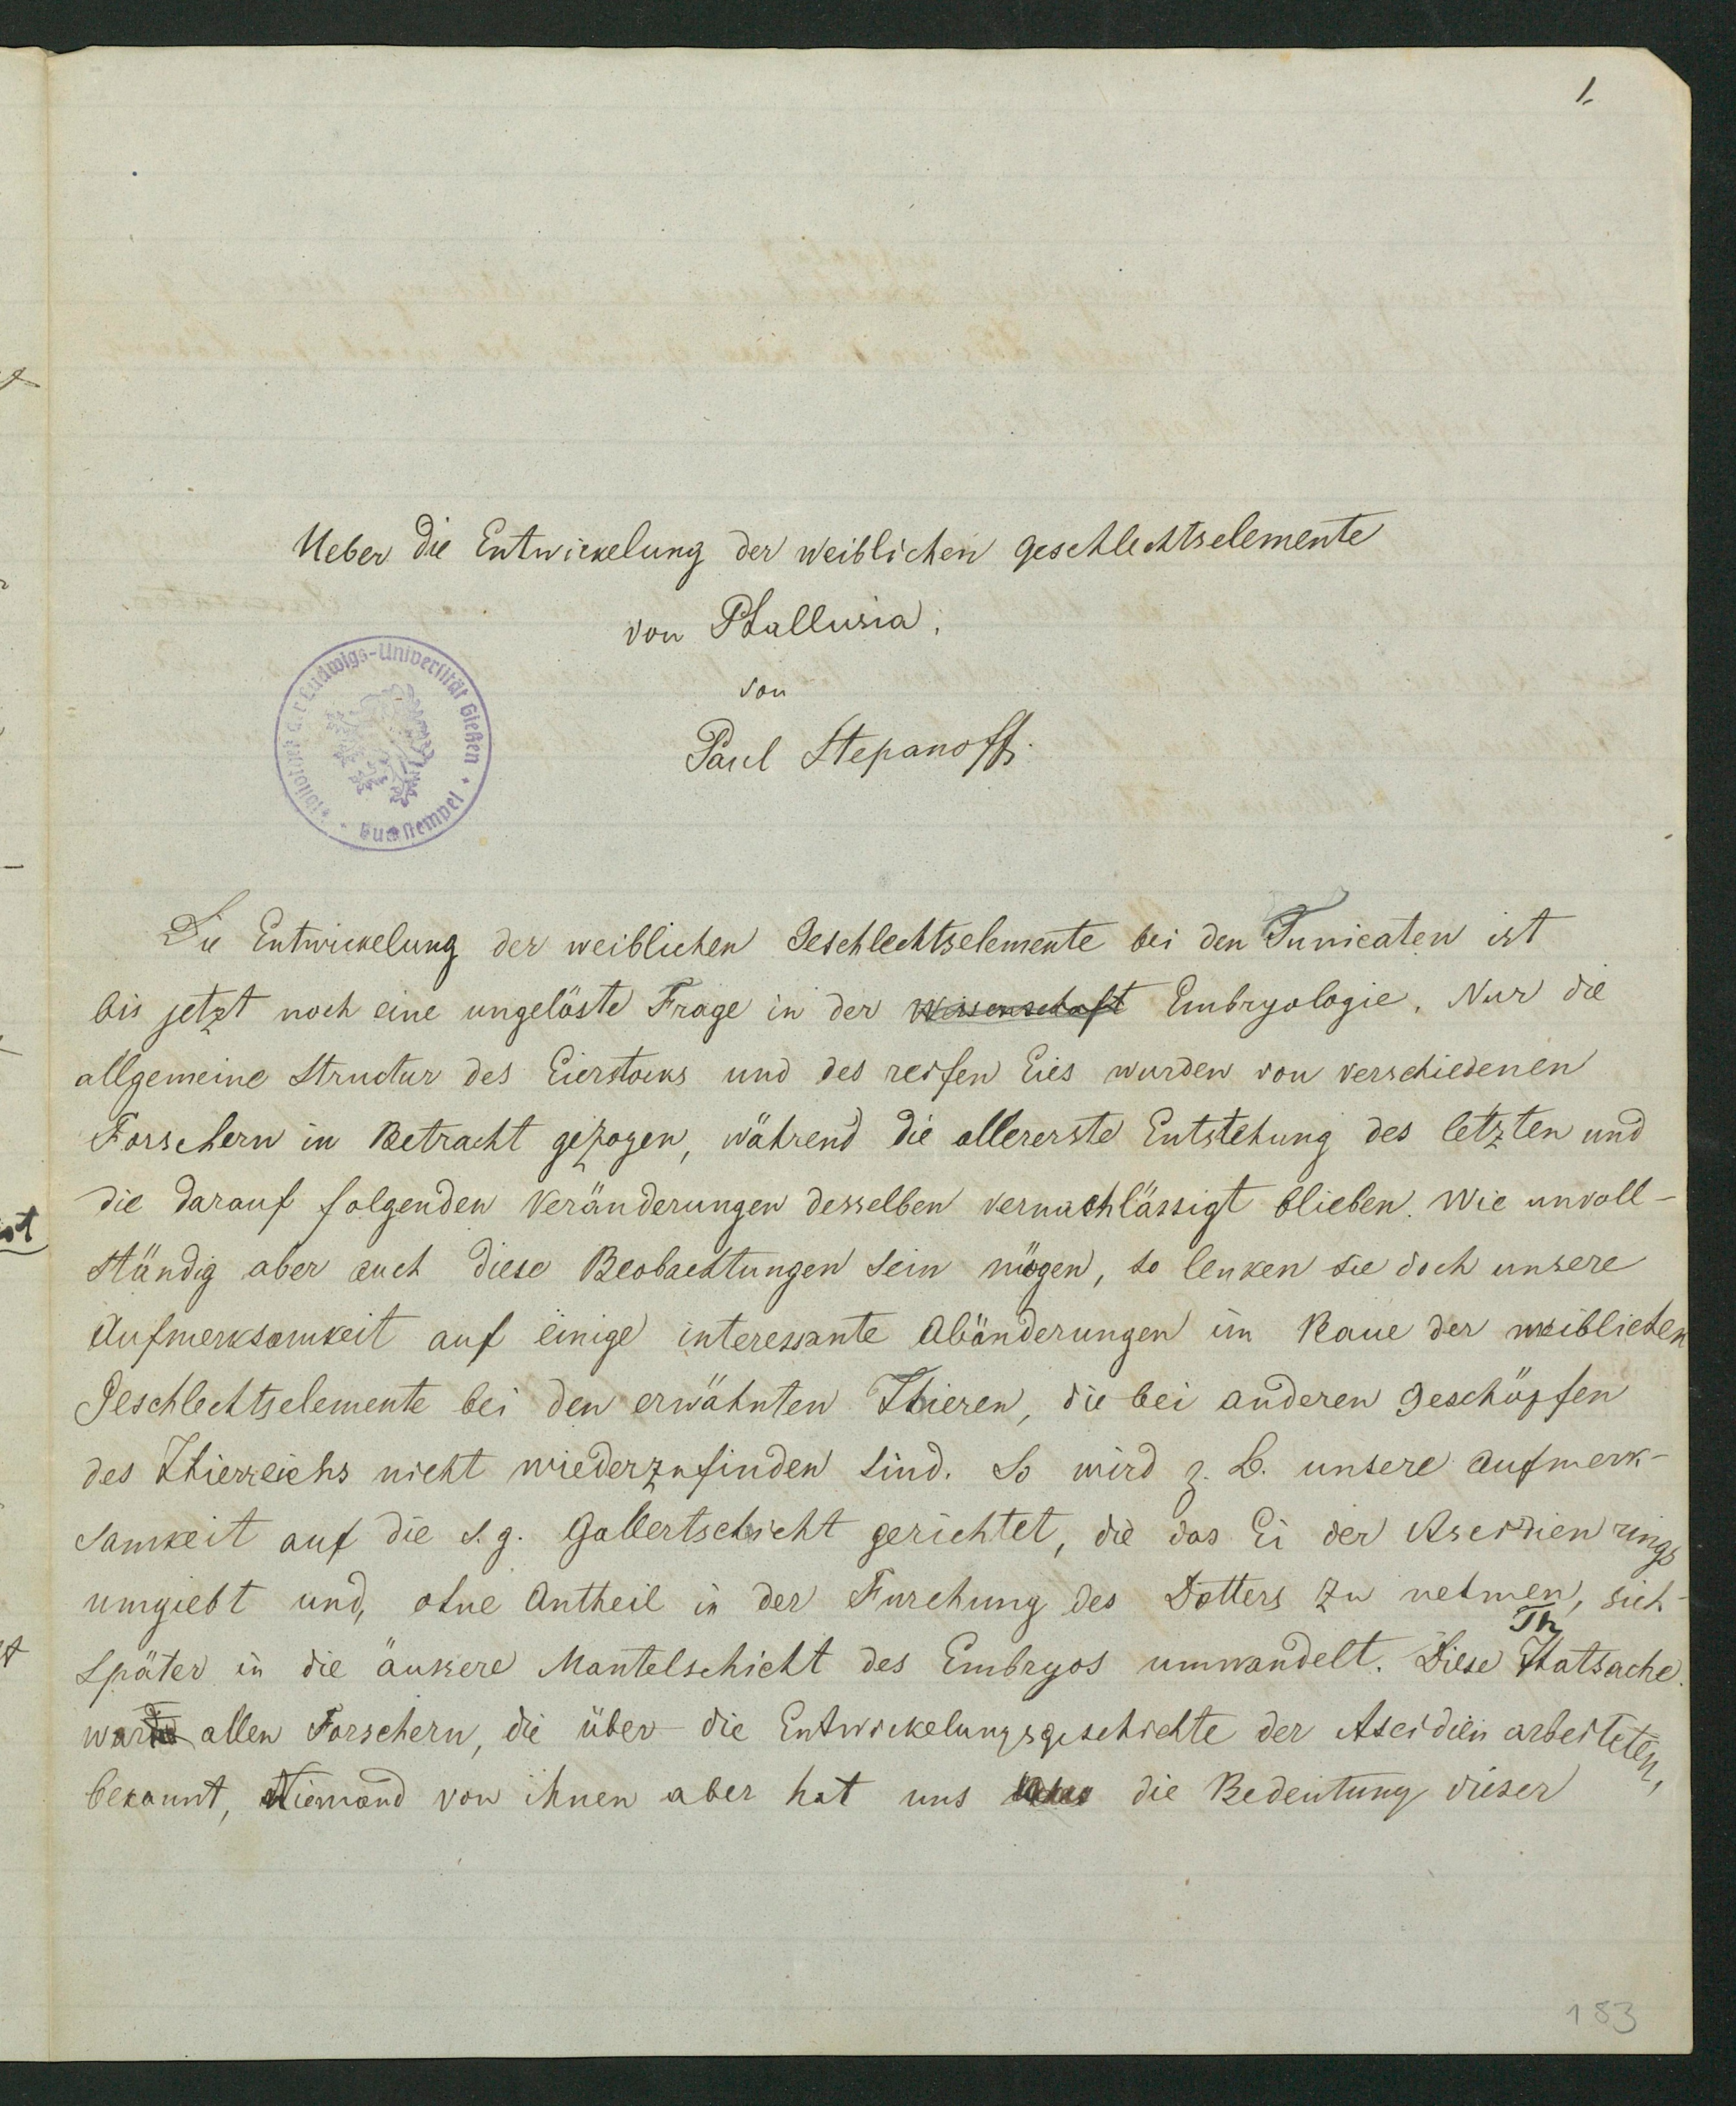 1.
Ueber die Entwickelung der weiblichen Geschlechtselemente
von Phallusia,
von
Paul Stepanoff.
Ludwigs-Universität Gießen
Die Entwickelung der weiblichen Geschlechtselemente bei den Tunicaten ist
bis jetzt noch eine ungelöste Frage in der Wissenschaft Embryologie. Nur die
allgemeine Structur des Eierstocks und des reifen Eies wurden von verschiedenen
Forschern in Betracht gezogen, während die allererste Entstehung des letzten und
die darauf folgenden Veränderungen desselben vernachlässigt blieben. Wie unvoll-
ständig aber auch diese Beobachtungen sein mögen, so lenken sie doch unsere
Aufmerksamkeit auf einige interessante Abänderungen im Baue der weiblichen
Geschlechtselemente bei den erwähnten Thieren, die bei anderen Geschöpfen
des Thierreichs nicht wiederzufinden sind. So wird z. B. unsere Aufmerk-
samkeit auf die s.g. Gallertschicht gerichtet, die das Ei der Ascidien rings
umgiebt und, ohne Antheil in der Furchung des Dotters zu nehmen, sich
später in die äussere Mantelschicht des Embryos umwandelt. Diese Thatsache
war allen Forschern, die über die Entwickelungsgeschichte der Ascidien arbeiteten,
bekannt, Niemand von ihnen aber hat uns die Bedeutung dieser
183